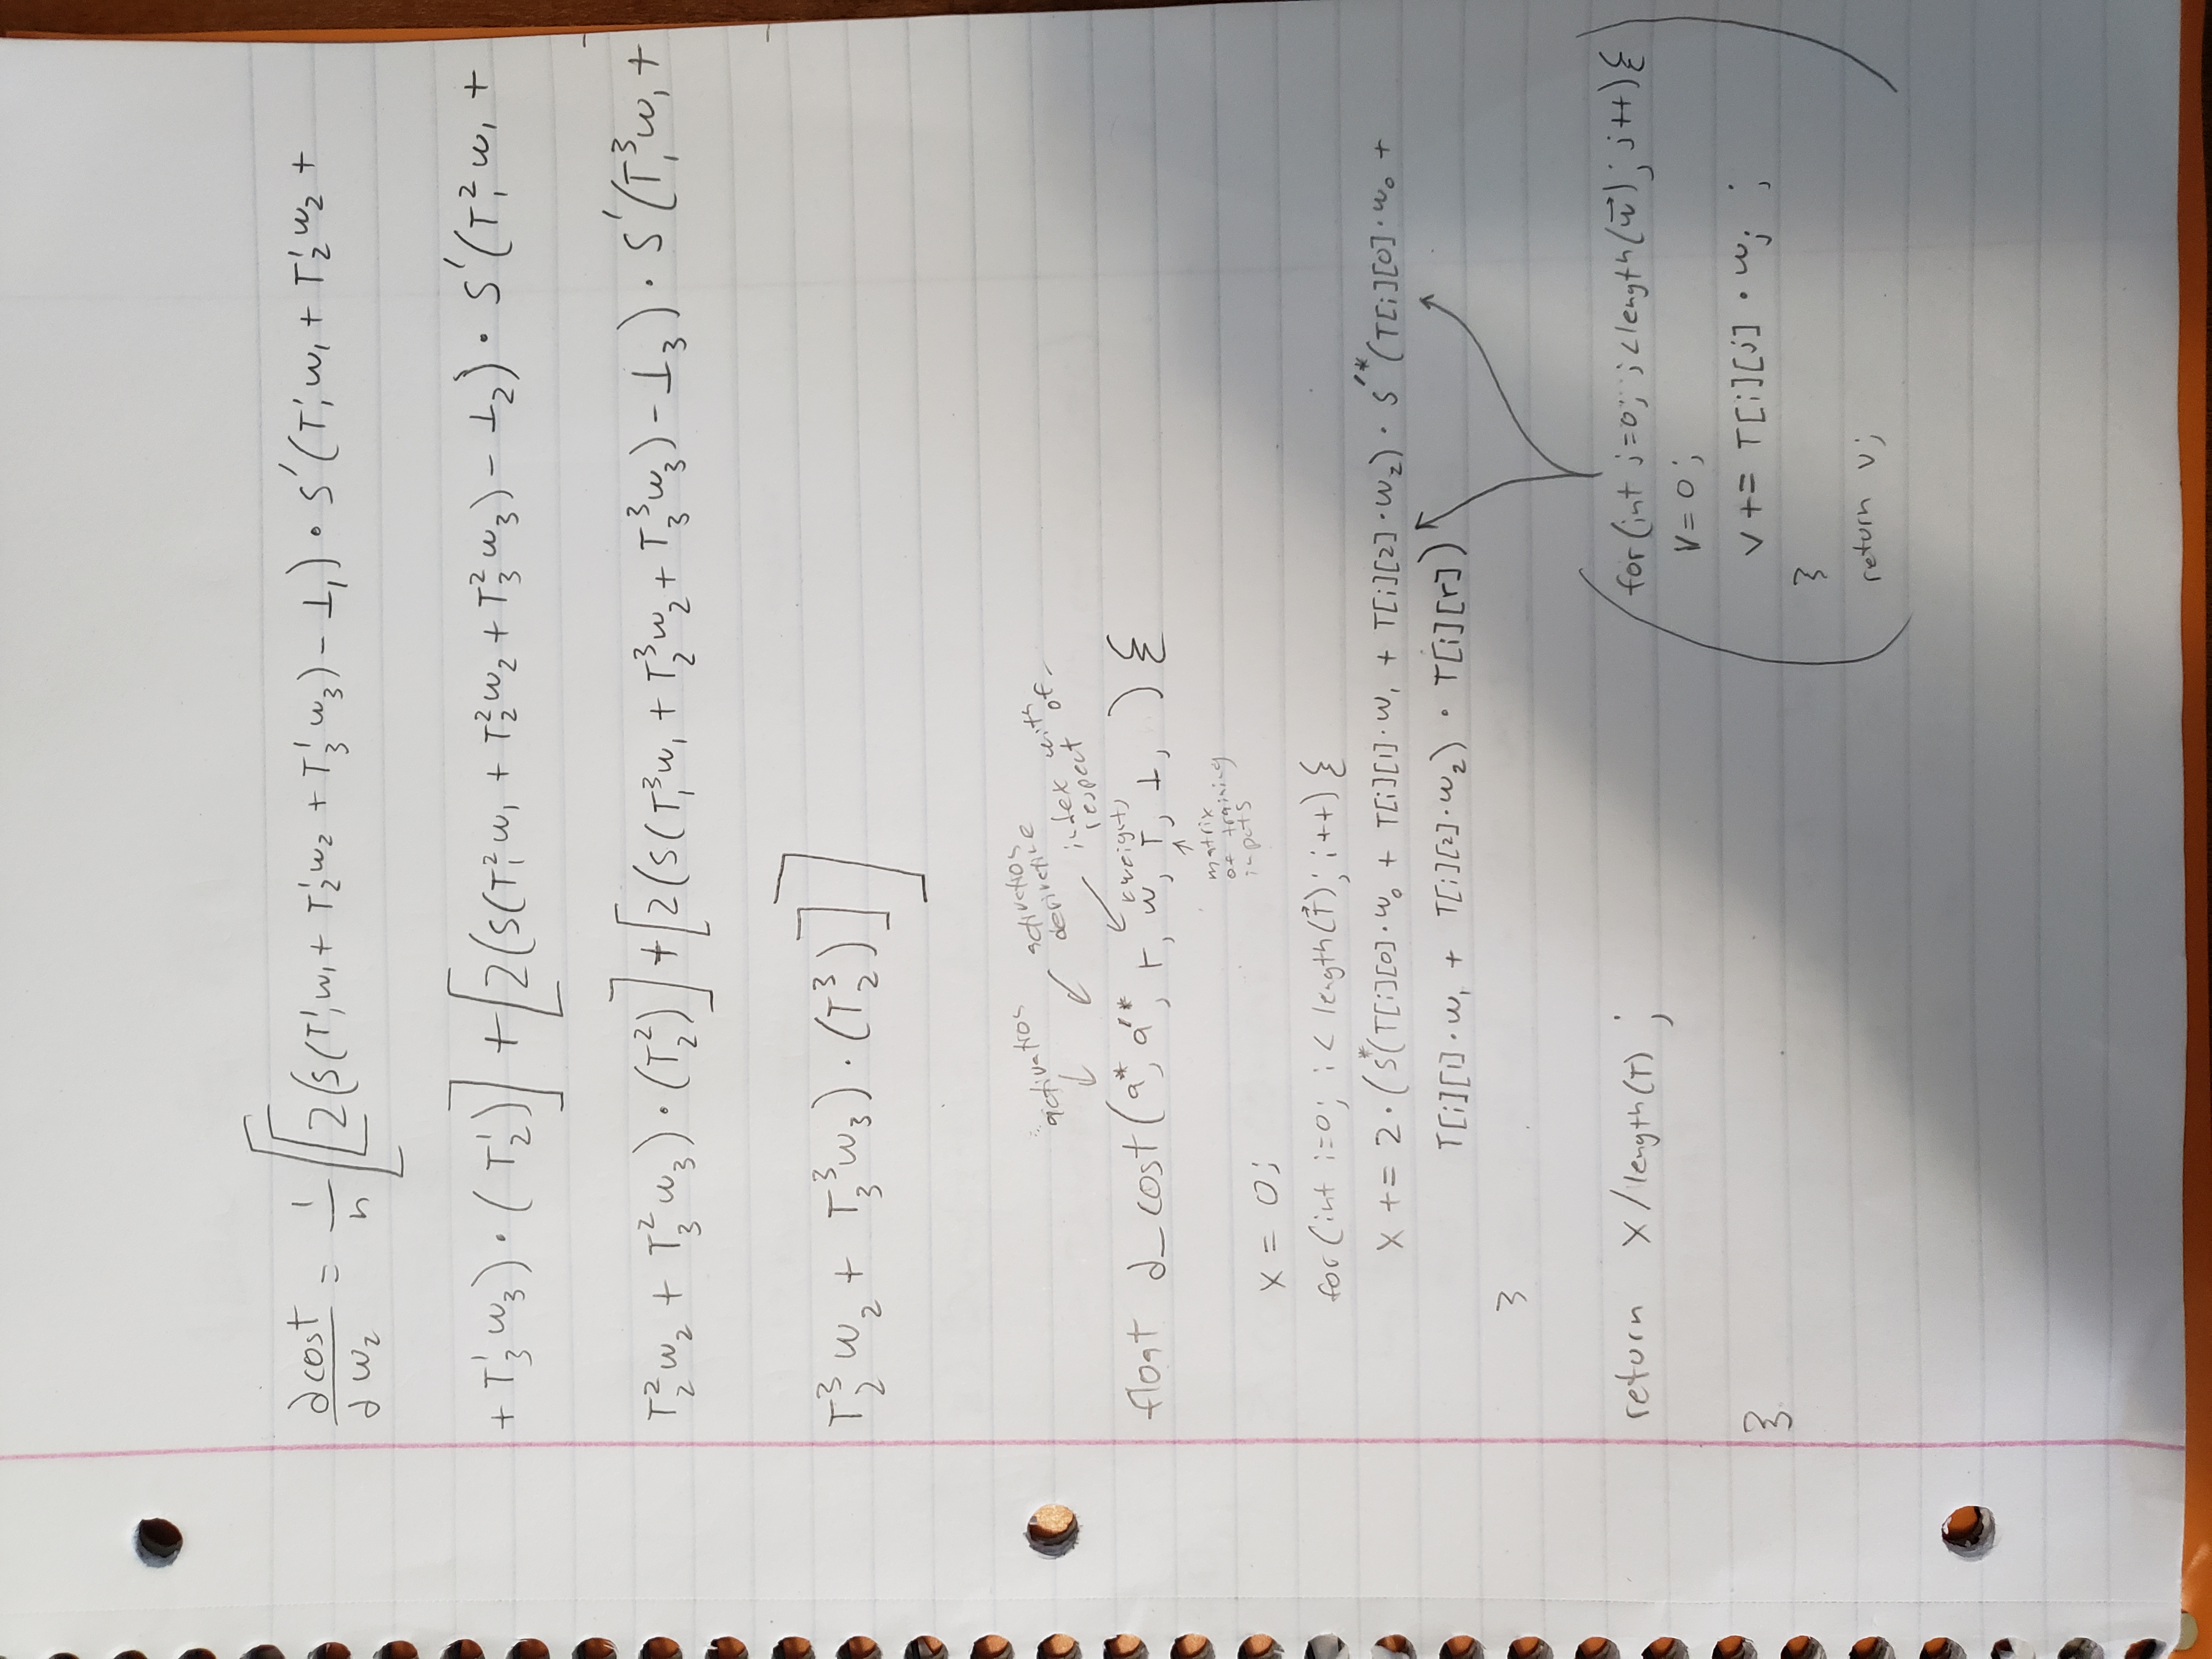 ∂cost/∂w₂ = 1/n [[2(S(T¹₁w₁ + T¹₂w₂ + T¹₃w₃) − ⊥₁) · S′(T¹₁w₁ + T¹₂w₂ +
+ T¹₃w₃) · (T¹₂)] + [2(S(T²₁w₁ + T²₂w₂ + T²₃w₃) − ⊥₂) · S′(T²₁w₁ +
T²₂w₂ + T²₃w₃) · (T²₂)] + [2(S(T³₁w₁ + T³₂w₂ + T³₃w₃) − ⊥₃) · S′(T³₁w₁ +
T³₂w₂ + T³₃w₃) · (T³₂)]]
activation
activation
derivative
index with
respect of
weights
float ∂_cost(a*, a′*, r, w, T, ⊥, ) {
matrix
of training
inputs
x = 0;
for(int i=0; i < length(T⃗); i++) {
x += 2·(S*(T[i][0]·w₀ + T[i][1]·w₁ + T[i][2]·w₂) · S′*(T[i][0]·w₀ +
T[i][1]·w₁ + T[i][2]·w₂) · T[i][r])
}
return x/length(T);
}
for(int j=0; j<length(w⃗); j++){
v=0;
v += T[i][j] · wⱼ ;
}
return v;